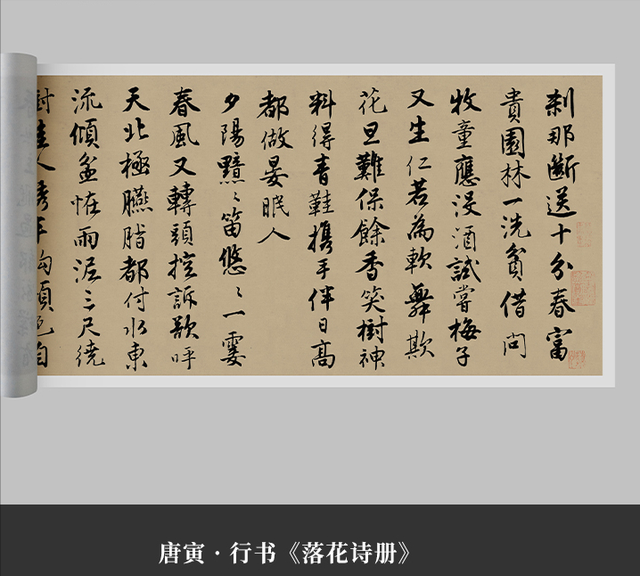 刹那斷送十分春富
貴園林一洗貧借问
牧童應沒酒試嘗梅子
又生仁若為軟舞欺
花旦難保餘香笑樹神
料得青鞋攜手伴日高
都做晏眠人
夕陽黯〻笛悠〻一霎
春風又轉頭控訴欲呼
天北極臙脂都付水東
流傾盆怪雨泥三尺繞
唐寅·行书《落花诗册》